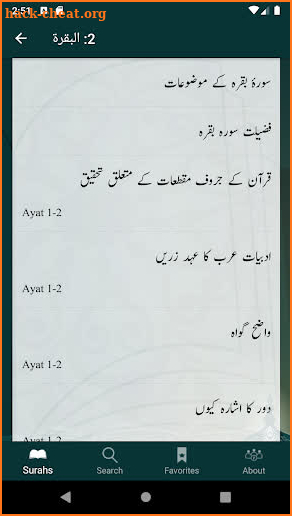 hack-cheat.org
2:51
2: البقرة
سورۂ بقرہ کے موضوعات
فضیلت سورہ بقرہ
قرآن کے حروف مقطعات کے متعلق تحقیق
Ayat 1-2
ادبیات عرب کا عہد زریں
Ayat 1-2
واضح گواہ
Ayat 1-2
دور کا اشارہ کیوں
Ayat 1-2
Surahs
Search
Favorites
About
hack-cheat.org